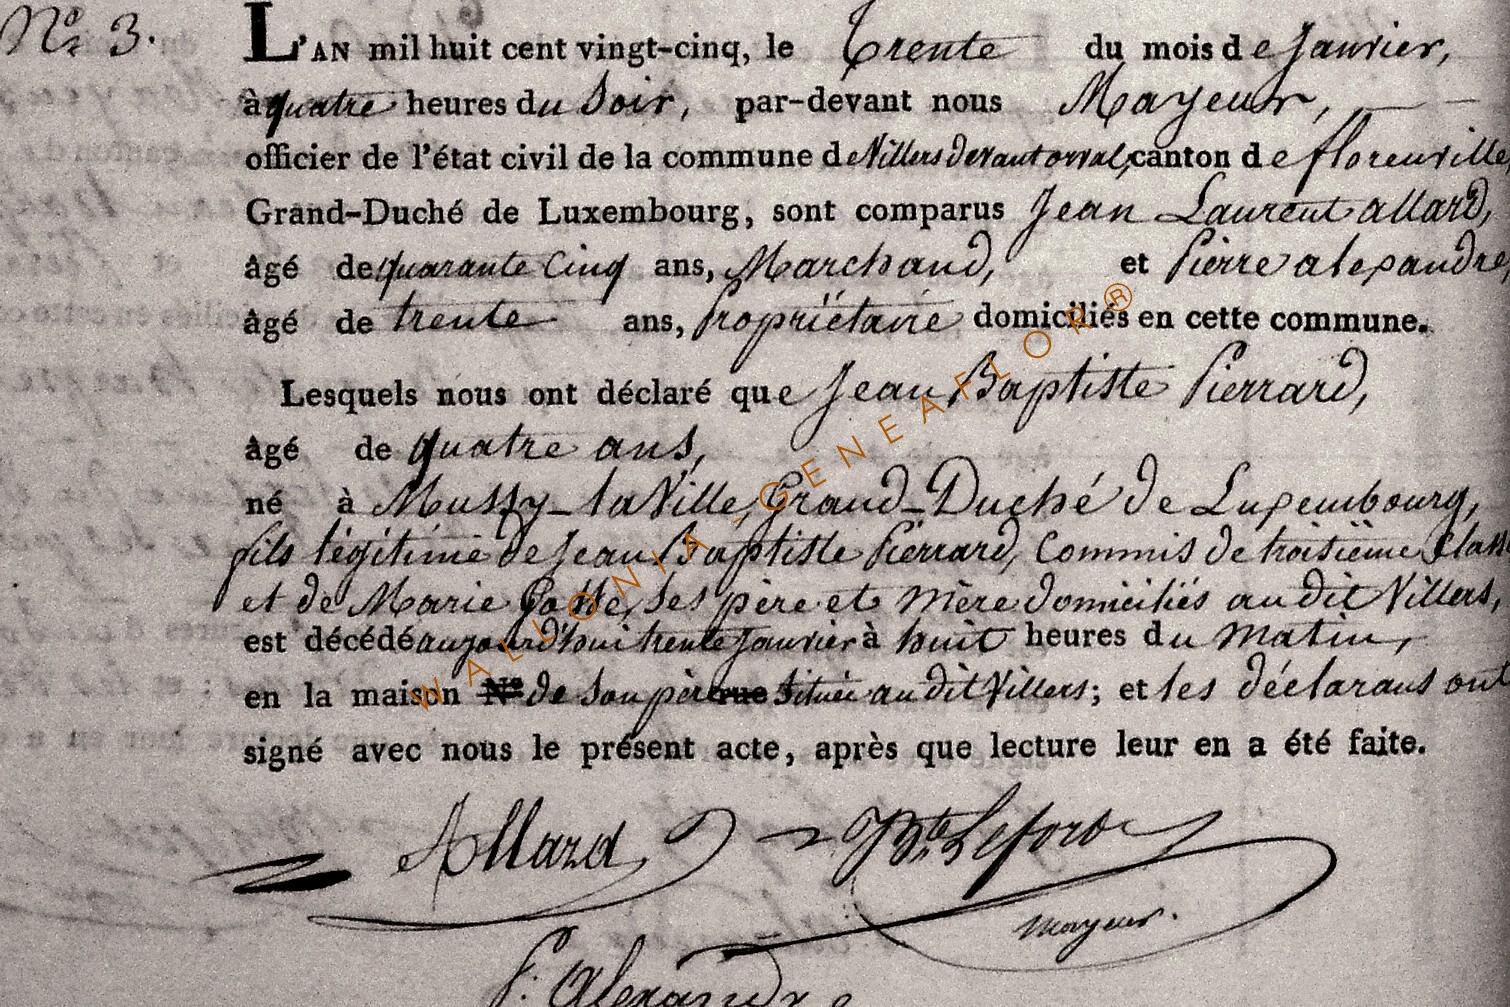 N.º 3.
L'AN mil huit cent vingt-cinq, le Trente du mois de Janvier,
à quatre heures du Soir, par-devant nous Mayeur,
officier de l'état civil de la commune de Villers devant orval, canton de florenville,
Grand-Duché de Luxembourg, sont comparus Jean Laurent allard,
âgé de quarante Cinq ans, Marchand, et Pierre alexandre,
âgé de trente ans, Propriétaire domiciliés en cette commune.
Lesquels nous ont déclaré que Jean Baptiste Pierrard,
âgé de quatre ans,
né à Mussy-laVille, Grand-Duché de Luxembourg,
fils légitime de Jean Baptiste Pierrard, Commis de troisième Classe
et de Marie ses père et mère domiciliés au dit Villers,
est décédé aujourd'hui trente Janvier à huit heures du matin,
en la maison N.º de son père rue située au dit Villers; et les déclarans ont
signé avec nous le présent acte, après que lecture leur en a été faite.
Allard Bte Lefort
mayeur.
P. Alexandre
WALLONIA-GENEAFLOR®